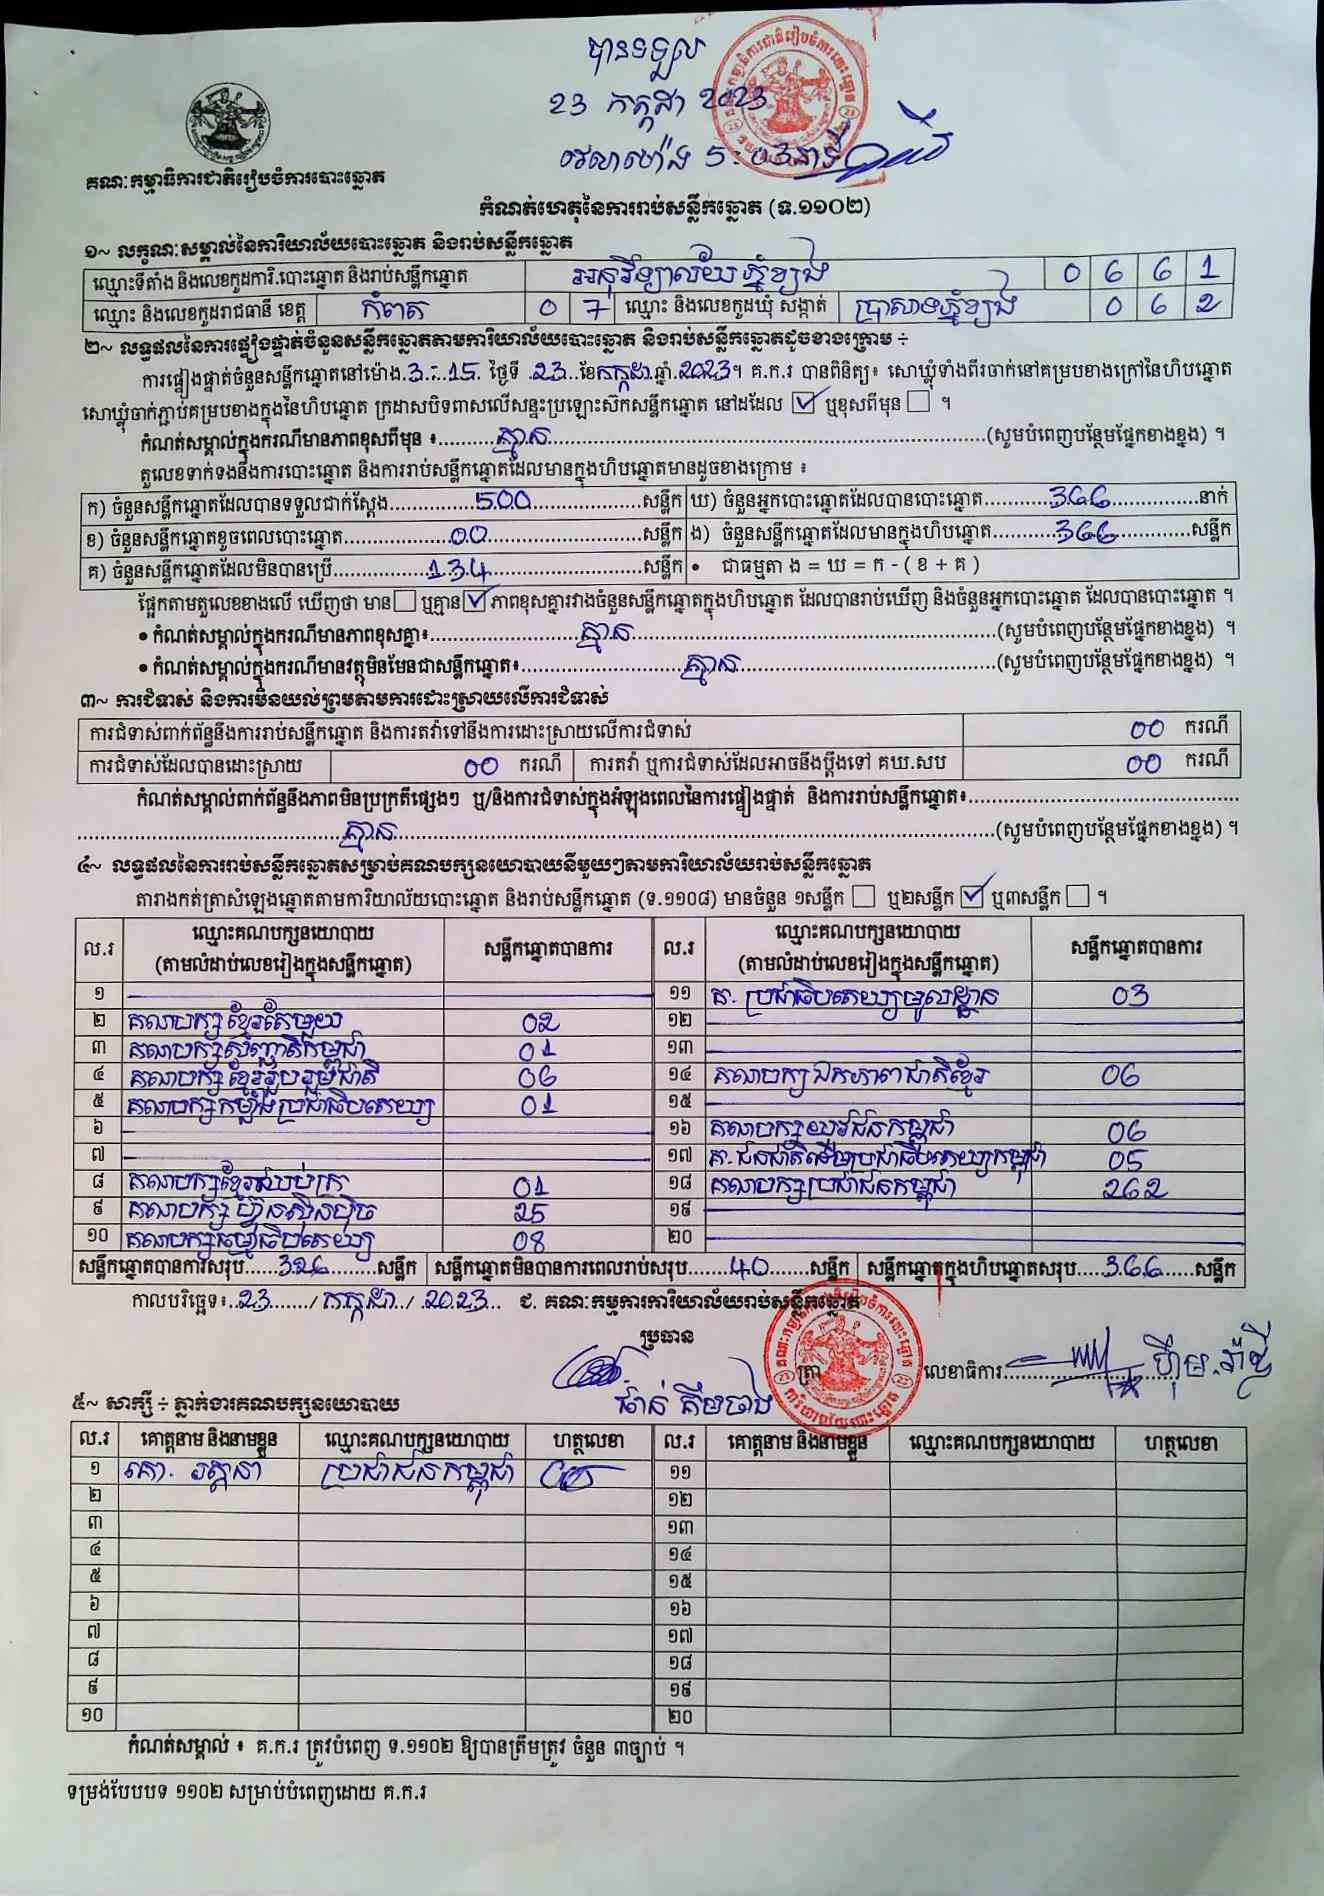 បានទទួល
23 កក្កដា 2023
វេលាម៉ោង 5:03នាទី
គណៈកម្មាធិការជាតិរៀបចំការបោះឆ្នោត
កំណត់ហេតុនៃការរាប់សន្លឹកឆ្នោត (ទ.១១០២)
១~ លក្ខណៈសម្គាល់នៃការិយាល័យបោះឆ្នោត និងរាប់សន្លឹកឆ្នោត
ឈ្មោះទីតាំង និងលេខកូដការិ.បោះឆ្នោត និងរាប់សន្លឹកឆ្នោត អនុវិទ្យាល័យភ្នំខ្យង 0 6 6 1
ឈ្មោះ និងលេខកូដរាជធានី ខេត្ត កំពត 0 7 ឈ្មោះ និងលេខកូដឃុំ សង្កាត់ ប្រាសាទភ្នំខ្យង 0 6 2
២~ លទ្ធផលនៃការផ្ទៀងផ្ទាត់ចំនួនសន្លឹកឆ្នោតតាមការិយាល័យបោះឆ្នោត និងរាប់សន្លឹកឆ្នោតដូចខាងក្រោម ÷
ការផ្ទៀងផ្ទាត់ចំនួនសន្លឹកឆ្នោតនៅម៉ោង.3:.15. ថ្ងៃទី .23..ខែកក្កដា.ឆ្នាំ.2023។ គ.ក.រ បានពិនិត្យ៖ សោឃ្លុំទាំងពីរចាក់នៅគម្របខាងក្រៅនៃហិបឆ្នោត
សោឃ្លុំចាក់ភ្ជាប់គម្របខាងក្នុងនៃហិបឆ្នោត ក្រដាសបិទពាសលើសន្ទះប្រឡោះស៊កសន្លឹកឆ្នោត នៅដដែល ☑ ឬខុសពីមុន ☐ ។
កំណត់សម្គាល់ក្នុងករណីមានភាពខុសពីមុន ៖..........គ្មាន..........(សូមបំពេញបន្ថែមផ្នែកខាងខ្នង) ។
តួលេខទាក់ទងនឹងការបោះឆ្នោត និងការរាប់សន្លឹកឆ្នោតដែលមានក្នុងហិបឆ្នោតមានដូចខាងក្រោម ៖
ក) ចំនួនសន្លឹកឆ្នោតដែលបានទទួលជាក់ស្ដែង..........500..........សន្លឹក ឃ) ចំនួនអ្នកបោះឆ្នោតដែលបានបោះឆ្នោត..........366..........នាក់
ខ) ចំនួនសន្លឹកឆ្នោតខូចពេលបោះឆ្នោត..........00..........សន្លឹក ង) ចំនួនសន្លឹកឆ្នោតដែលមានក្នុងហិបឆ្នោត..........366..........សន្លឹក
គ) ចំនួនសន្លឹកឆ្នោតដែលមិនបានប្រើ..........134..........សន្លឹក • ជាធម្មតា ង = ឃ = ក - ( ខ + គ )
ផ្អែកតាមតួលេខខាងលើ ឃើញថា មាន☐ ឬគ្មាន☑ ភាពខុសគ្នារវាងចំនួនសន្លឹកឆ្នោតក្នុងហិបឆ្នោត ដែលបានរាប់ឃើញ និងចំនួនអ្នកបោះឆ្នោត ដែលបានបោះឆ្នោត ។
• កំណត់សម្គាល់ក្នុងករណីមានភាពខុសគ្នា៖..........គ្មាន..........(សូមបំពេញបន្ថែមផ្នែកខាងខ្នង) ។
• កំណត់សម្គាល់ក្នុងករណីមានវត្ថុមិនមែនជាសន្លឹកឆ្នោត៖..........គ្មាន..........(សូមបំពេញបន្ថែមផ្នែកខាងខ្នង) ។
៣~ ការជំទាស់ និងការមិនយល់ព្រមតាមការដោះស្រាយលើការជំទាស់
ការជំទាស់ពាក់ព័ន្ធនឹងការរាប់សន្លឹកឆ្នោត និងការតវ៉ាទៅនឹងការដោះស្រាយលើការជំទាស់ 00 ករណី
ការជំទាស់ដែលបានដោះស្រាយ 00 ករណី ការតវ៉ា ឬការជំទាស់ដែលអាចនឹងប្ដឹងទៅ គឃ.សប 00 ករណី
កំណត់សម្គាល់ពាក់ព័ន្ធនឹងភាពមិនប្រក្រតីផ្សេងៗ ឬ/និងការជំទាស់ក្នុងអំឡុងពេលនៃការផ្ទៀងផ្ទាត់ និងការរាប់សន្លឹកឆ្នោត៖..........
..........គ្មាន..........(សូមបំពេញបន្ថែមផ្នែកខាងខ្នង) ។
៤~ លទ្ធផលនៃការរាប់សន្លឹកឆ្នោតសម្រាប់គណបក្សនយោបាយនីមួយៗតាមការិយាល័យរាប់សន្លឹកឆ្នោត
តារាងកត់ត្រាសំឡេងឆ្នោតតាមការិយាល័យបោះឆ្នោត និងរាប់សន្លឹកឆ្នោត (ទ.១១០៨) មានចំនួន ១សន្លឹក ☐ ឬ២សន្លឹក ☑ ឬ៣សន្លឹក ☐ ។
ល.រ ឈ្មោះគណបក្សនយោបាយ (តាមលំដាប់លេខរៀងក្នុងសន្លឹកឆ្នោត) សន្លឹកឆ្នោតបានការ ល.រ ឈ្មោះគណបក្សនយោបាយ (តាមលំដាប់លេខរៀងក្នុងសន្លឹកឆ្នោត) សន្លឹកឆ្នោតបានការ
១ ១១ គ. ប្រជាធិបតេយ្យមូលដ្ឋាន 03
២ គណបក្សខ្មែរតែមួយ 02 ១២
៣ គណបក្សសញ្ជាតិកម្ពុជា 01 ១៣
៤ គណបក្សខ្មែររួបរួមជាតិ 06 ១៤ គណបក្សឯកភាពជាតិខ្មែរ 06
៥ គណបក្សកម្លាំងប្រជាធិបតេយ្យ 01 ១៥
៦ ១៦ គណបក្សយុវជនកម្ពុជា 06
៧ ១៧ គ. ជនជាតិដើមប្រជាធិបតេយ្យកម្ពុជា 05
៨ គណបក្សខ្មែរឈប់ក្រ 01 ១៨ គណបក្សប្រជាជនកម្ពុជា 262
៩ គណបក្សហ៊្វុនស៊ិនប៉ិច 25 ១៩
១០ គណបក្សធម្មាធិបតេយ្យ 08 ២០
សន្លឹកឆ្នោតបានការសរុប.....326........សន្លឹក សន្លឹកឆ្នោតមិនបានការពេលរាប់សរុប.......40.......សន្លឹក សន្លឹកឆ្នោតក្នុងហិបឆ្នោតសរុប.....366.....សន្លឹក
កាលបរិច្ឆេទ៖..23......./កក្កដា../2023.. ជ. គណៈកម្មការការិយាល័យរាប់សន្លឹកឆ្នោត
ប្រធាន
ត្រា
លេខាធិការ..........
៥~ សាក្សី ÷ ភ្នាក់ងារគណបក្សនយោបាយ
ល.រ គោត្តនាម និងនាមខ្លួន ឈ្មោះគណបក្សនយោបាយ ហត្ថលេខា ល.រ គោត្តនាម និងនាមខ្លួន ឈ្មោះគណបក្សនយោបាយ ហត្ថលេខា
១ គោ. រត្តនា ប្រជាជនកម្ពុជា ១១
២ ១២
៣ ១៣
៤ ១៤
៥ ១៥
៦ ១៦
៧ ១៧
៨ ១៨
៩ ១៩
១០ ២០
កំណត់សម្គាល់ ៖ គ.ក.រ ត្រូវបំពេញ ទ.១១០២ ឱ្យបានត្រឹមត្រូវ ចំនួន ៣ច្បាប់ ។
ទម្រង់បែបបទ ១១០២ សម្រាប់បំពេញដោយ គ.ក.រ